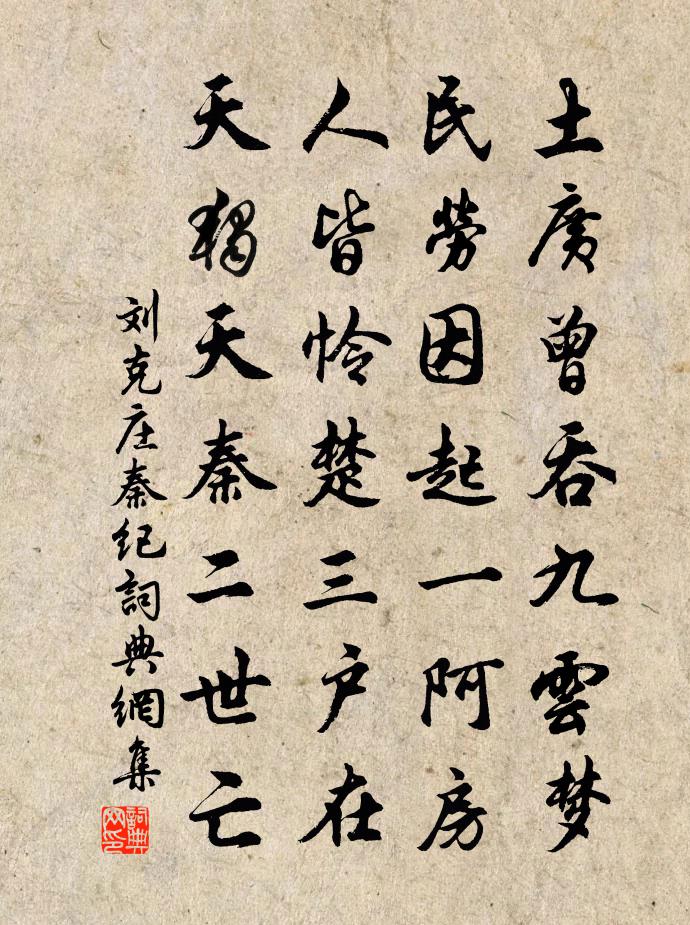 土廣曾吞九雲梦
民勞因起一阿房
人皆怜楚三户在
天独天秦二世亡
刘克庄秦纪詞典網集
詞典
网印